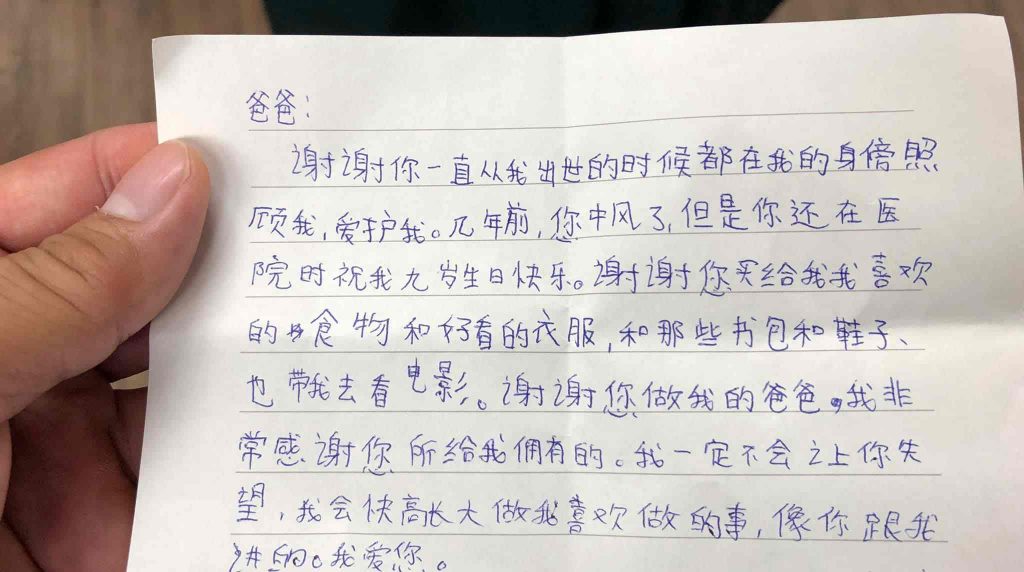 爸爸:
谢谢你一直从我出世的时候都在我的身傍照
顾我,爱护我。几年前,您中风了,但是你还在医
院时祝我九岁生日快乐。谢谢您买给我我喜欢
的食物和好看的衣服,和那些书包和鞋子、
也带我去看电影。谢谢您做我的爸爸,我非
常感谢您所给我拥有的。我一定不会让你失
望,我会快高长大做我喜欢做的事,像你跟我
讲的。我爱您。